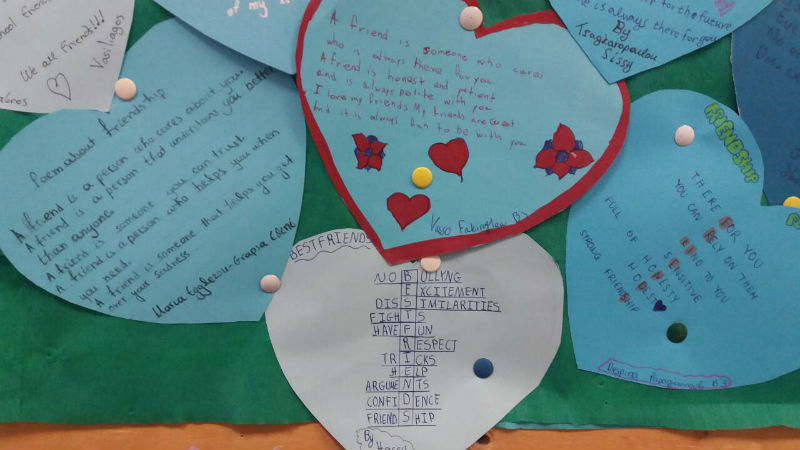 We all friends!!!
Vasiliagos
of my
A friend is someone who cares
who is always there for you
A friend is honest and patient
and is always polite with you
I love my friends My friends are Great
And it is always fun to be with you
Vaso
B3
for the future
is always there for you
By
Sissy
Poem about friendship
A friend is a person who cares about you.
A friend is a person that understans you better
than anyone
A friend is someone you can trust
A friend is a person who helps you when
you need.
A friend is someone that helps you get
over your sadness
BEST FRIENDS
NO BULLYNG
EXCITEMENT
DISSIMILARITIES
FIGHTS
HAVE FUN
RESPECT
TRICKS
HELP
ARGUMENTS
CONFIDENCE
FRIENDSHIP
By
FRIENDSHIP
THERE FOR YOU
YOU CAN RELY ON THEM
KIND TO YOU
SENSITIVE
FULL OF HONESTY
MODEST
STRONG FRIENDSHIP
Despina
B3